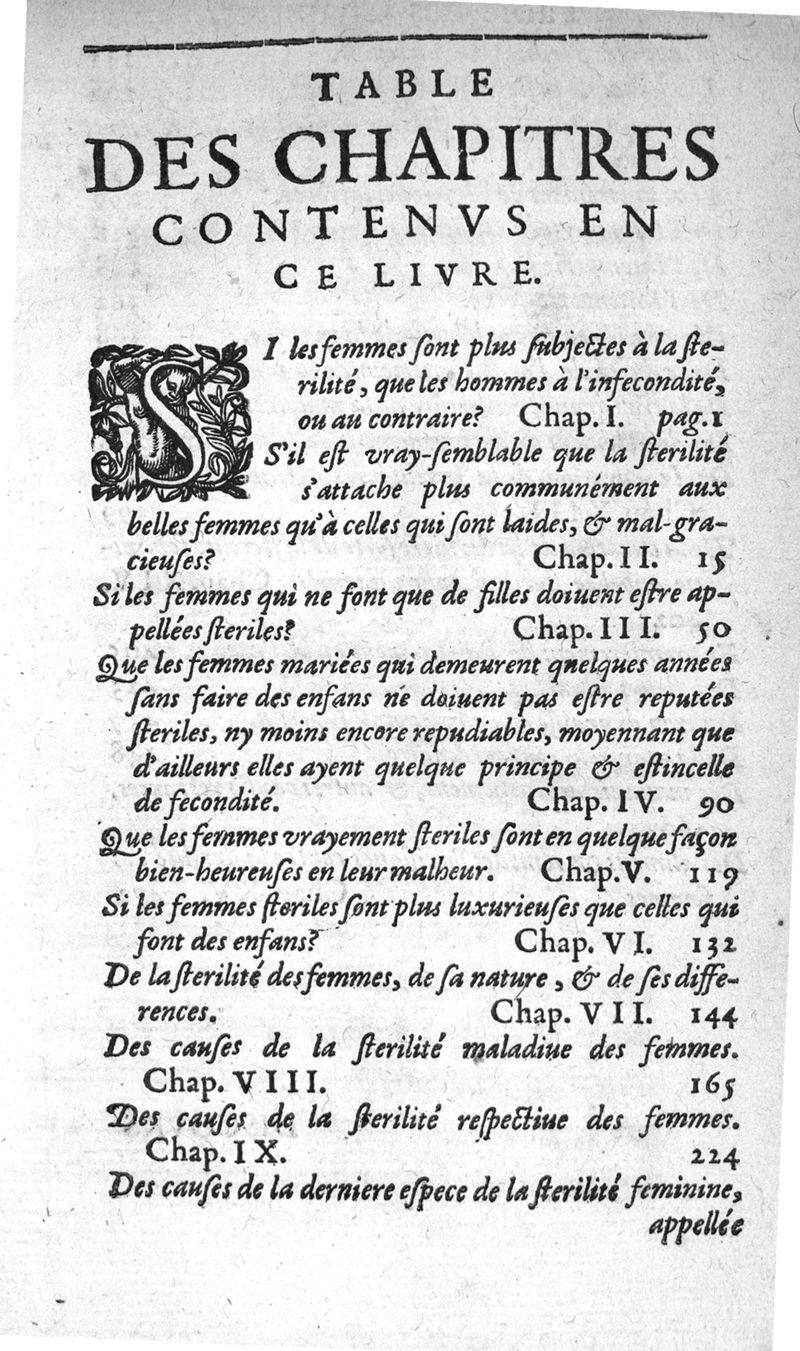 TABLE
DES CHAPITRES
CONTENVS EN
CE LIVRE.
SI les femmes ſont plus ſubjectes à la ſte-
rilité, que les hommes à l'infecondité,
ou au contraire? Chap. I. pag. 1
S'il eſt vray-ſemblable que la ſterilité
s'attache plus communément aux
belles femmes qu'à celles qui ſont laides, & mal-gra-
cieuſes? Chap. II. 15
Si les femmes qui ne font que de filles doiuent eſtre ap-
pellées ſteriles? Chap. III. 50
Que les femmes mariées qui demeurent quelques années
ſans faire des enfans ne doiuent pas eſtre reputées
ſteriles, ny moins encore repudiables, moyennant que
d'ailleurs elles ayent quelque principe & eſtincelle
de fecondité. Chap. IV. 90
Que les femmes vrayement ſteriles ſont en quelque façon
bien-heureuſes en leur malheur. Chap. V. 119
Si les femmes ſteriles ſont plus luxurieuſes que celles qui
font des enfans? Chap. VI. 132
De la ſterilité des femmes, de ſa nature, & de ſes diffe-
rences. Chap. VII. 144
Des cauſes de la ſterilité maladiue des femmes.
Chap. VIII. 165
Des cauſes de la ſterilité reſpectiue des femmes.
Chap. IX. 224
Des cauſes de la derniere eſpece de la ſterilité feminine,
appellée